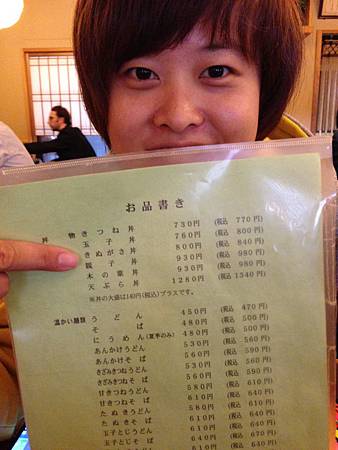 お品書き
丼 物 きつね丼 730円 (税込 770円)
玉子丼 760円 (税込 800円)
きぬがさ丼 800円 (税込 840円)
親子丼 930円 (税込 980円)
木の葉丼 930円 (税込 980円)
天ぷら丼 1280円 (税込 1340円)
※丼の大盛は140円(税込)プラスです。
温かい麺類 うどん 450円 (税込 470円)
そば 480円 (税込 500円)
にうめん(夏季のみ) 480円 (税込 500円)
あんかけうどん 530円 (税込 560円)
あんかけそば 560円 (税込 590円)
きざみきつねうどん 530円 (税込 560円)
きざみきつねそば 560円 (税込 590円)
甘きつねうどん 580円 (税込 610円)
甘きつねそば 610円 (税込 640円)
たぬきうどん 580円 (税込 610円)
たぬきそば 610円 (税込 640円)
玉子とじうどん 610円 (税込 640円)
玉子とじそば 640円 (税込 670円)
610円 (税込 640円)